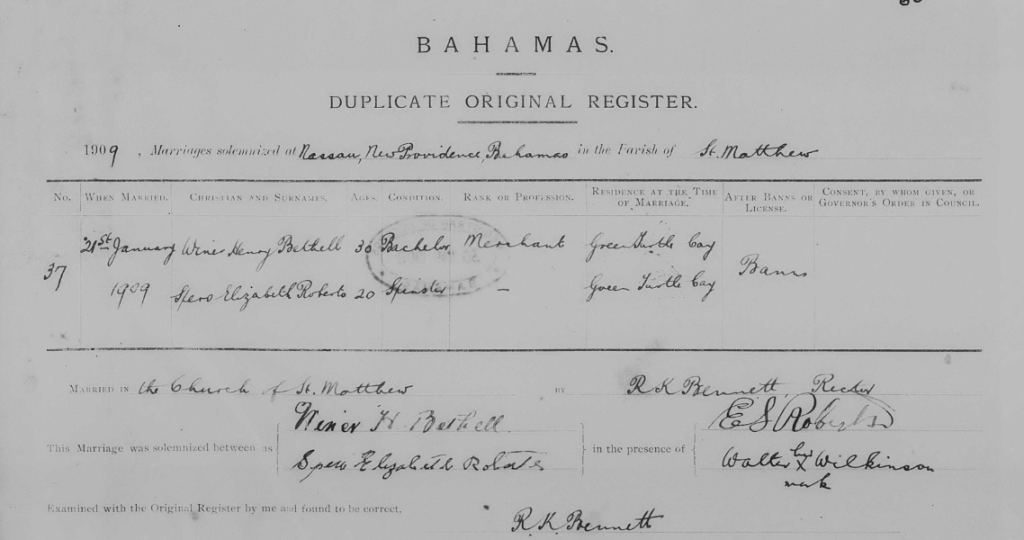 BAHAMAS.
DUPLICATE ORIGINAL REGISTER.
1909, Marriages solemnized at Nassau, New Providence, Bahamas in the Parish of St. Matthew
No. WHEN MARRIED. CHRISTIAN AND SURNAMES. AGES. CONDITION. RANK OR PROFESSION. RESIDENCE AT THE TIME OF MARRIAGE. AFTER BANNS OR LICENSE. CONSENT, BY WHOM GIVEN, OR GOVERNOR'S ORDER IN COUNCIL.
37 21st January Winer Henry Bethell 30 Bachelor Merchant Green Turtle Cay Banns
1909 Spero Elizabeth Roberts 20 Spinster – Green Turtle Cay
MARRIED IN the Church of St. Matthew BY R. K. Bennett, Rector
This Marriage was solemnized between us Winer H. Bethell. Spero Elizabeth Roberts in the presence of E S Roberts Walter his X mark Wilkinson
Examined with the Original Register by me and found to be correct,
R. K. Bennett